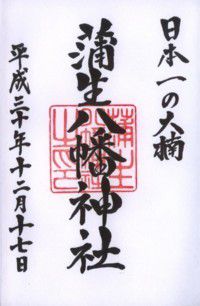 日本一の大楠
蒲生八幡神社
平成三十年十二月十七日